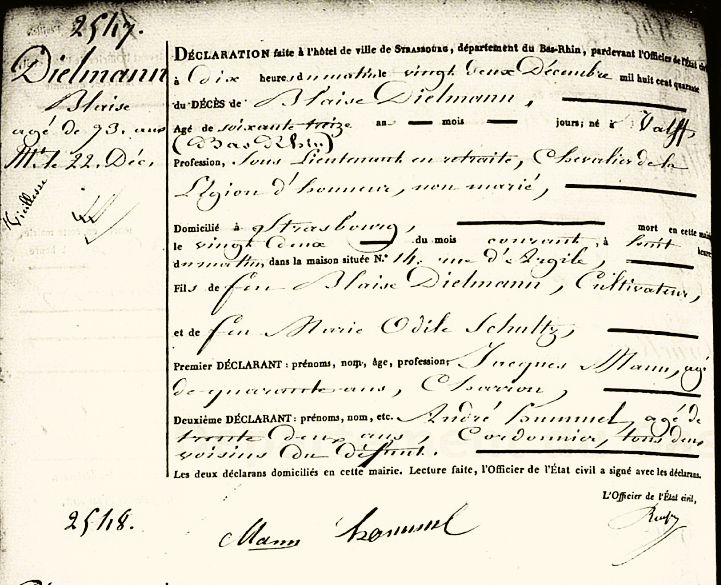 2547.
Dielmann
Blaise
agé de 93. ans
Mt. le 22. Déc.
Vieillesse
DÉCLARATION faite à l'hôtel de ville de STRASBOURG, département du Bas-Rhin, pardevant l'Officier de l'État civil
à dix heures du matin le vingt deux Décembre mil huit cent quarante
du DÉCÈS de Blaise Dielmann,
Agé de soixante treize an mois jours; né à Valff,
(Bas Rhin)
Profession, Sous Lieutenant en retraite, Chevalier de la
Légion d'honneur, non marié,
Domicilié à Strasbourg, mort en cette mairie
le vingt deux du mois courant, à huit heures
du matin, dans la maison située N.° 14. rue d'Argile,
Fils de feu Blaise Dielmann, Cultivateur,
et de feu Marie Odile Schultz,
Premier DÉCLARANT : prénoms, nom, âge, profession, Jacques Mann, agé
de quarante ans, Charron,
Deuxième DÉCLARANT: prénoms, nom, etc. André hummel, agé de
trente deux ans, Cordonnier, tous deux
voisins du défunt.
Les deux déclarans domiciliés en cette mairie. Lecture faite, l'Officier de l'État civil a signé avec les déclarans.
L'Officier de l'État civil,
2548.
Mann hummel